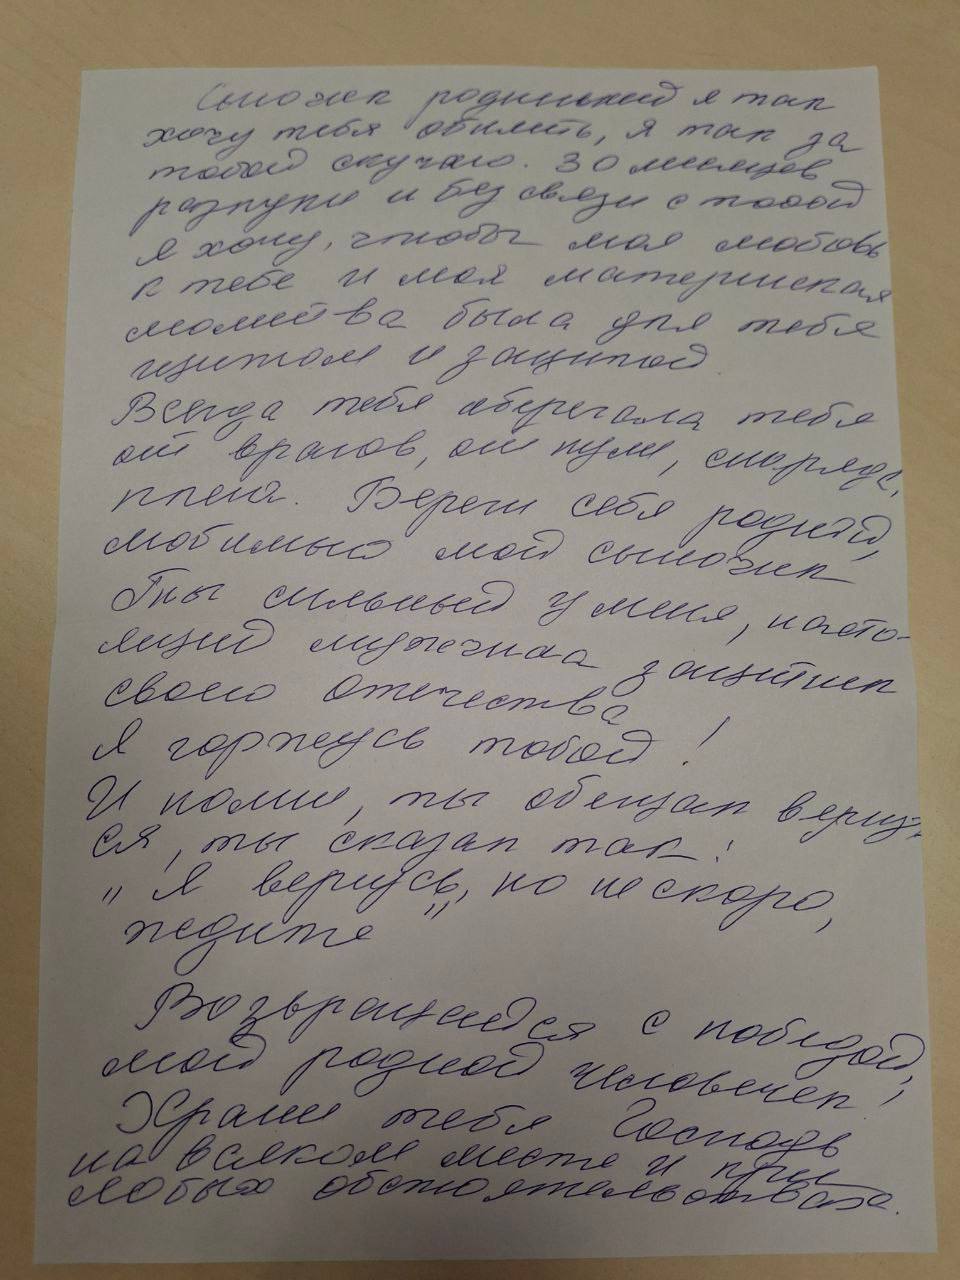 Сыночек родненький я так
хочу тебя обнять, я так за
тобой скучаю. 30 месяцев
разлуки и без связи с тобой
я хочу, чтобы моя любовь
к тебе и моя материнская
молитва была для тебя
щитом и защитой
Всегда тебя оберегала тебя
от врагов, от пули, снаряда,
плена. Береги себя родной,
любимый мой сыночек
Ты сильный у меня, насто-
ящий мужчина защитник
своего Отечества
Я горжусь тобой!
И помни, ты обещал вернуть-
ся, ты сказал так:
"Я вернусь, но не скоро,
ждите"
Возвращайся с победой,
мой родной человечек!
Храни тебя Господь
на всяком месте и при
любых обстоятельствах.